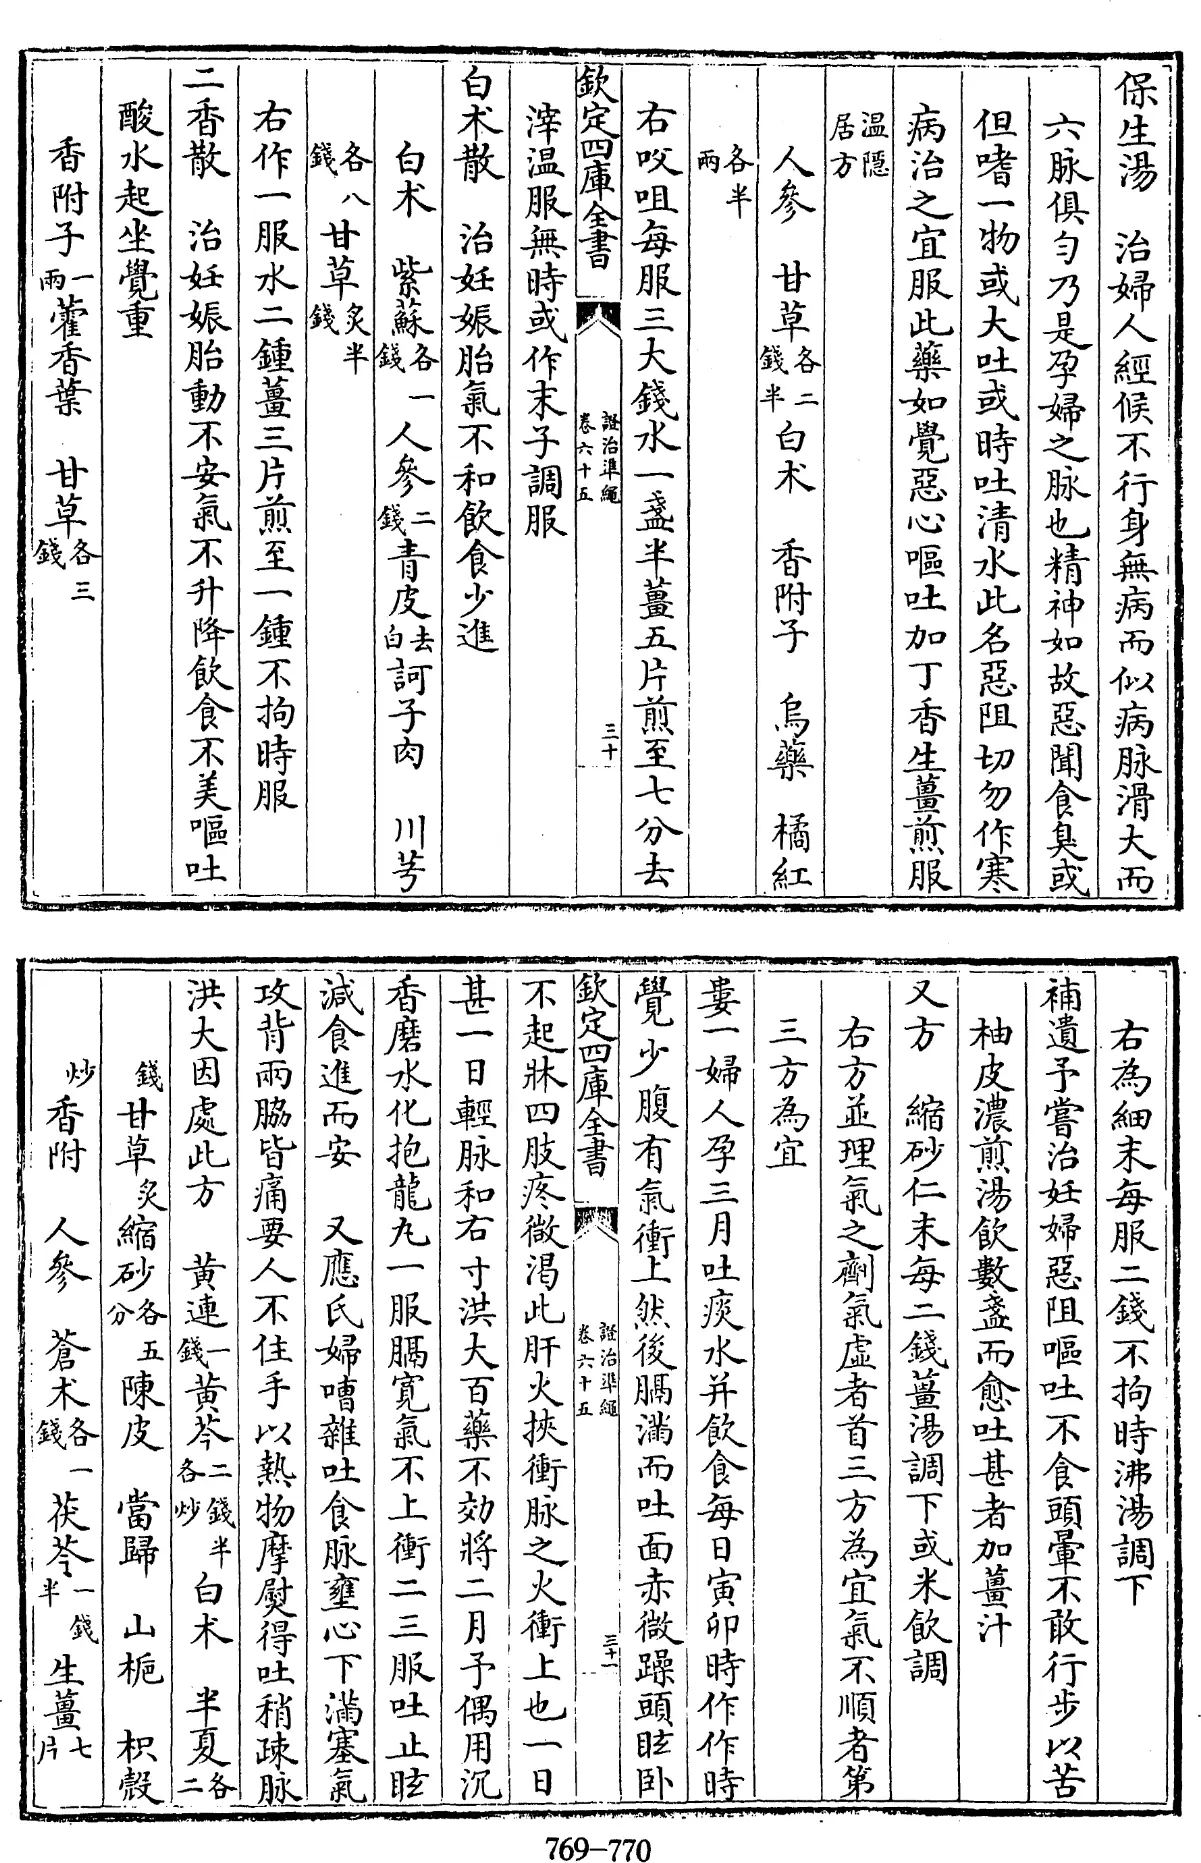 保生湯　治婦人經候不行身無病而似病脉滑大而
六脉俱匀乃是孕婦之脉也精神如故惡聞食臭或
但嗜一物或大吐或時吐清水此名惡阻切勿作寒
病治之宜服此藥如覺惡心嘔吐加丁香生薑煎服
温隠居方
人參　甘草各二錢半白术　香附子　烏藥　橘紅
各半兩
右㕮咀每服三大錢水一盞半薑五片煎至七分去
欽定四庫全書
證治準繩
卷六十五
三十
滓温服無時或作末子調服
白术散　治妊娠胎氣不和飲食少進
白术　紫蘇各一錢人參二錢青皮去白訶子肉　川芎
各八錢甘草炙半錢
右作一服水二鍾薑三片煎至一鍾不拘時服
二香散　治妊娠胎動不安氣不升降飲食不美嘔吐
酸水起坐覺重
香附子一兩藿香葉　甘草各三錢
右為細末每服二錢不拘時沸湯調下
補遺予嘗治妊婦惡阻嘔吐不食頭暈不敢行步以苦
柚皮濃煎湯飲數盞而愈吐甚者加薑汁
又方　縮砂仁末每二錢薑湯調下或米飲調
右方並理氣之劑氣虚者首三方為宜氣不順者第
三方為宜
婁一婦人孕三月吐痰水并飲食每日寅卯時作作時
覺少腹有氣衝上然後膈滿而吐面赤微躁頭眩卧
欽定四庫全書
證治準繩
卷六十五
三十一
不起牀四肢疼微渴此肝火挾衝脉之火衝上也一日
甚一日輕脉和右寸洪大百藥不効將二月予偶用沉
香磨水化抱龍丸一服膈寛氣不上衝二三服吐止眩
減食進而安　又應氏婦嘈雜吐食脉壅心下滿塞氣
攻背兩脇皆痛要人不住手以熱物摩熨得吐稍疎脉
洪大因處此方　黄連一錢黄芩二錢半各炒白术　半夏各二
錢甘草炙縮砂各五分陳皮　當歸　山梔　枳殻
炒香附　人參　蒼术各一錢茯苓一錢半生薑七片
769–770